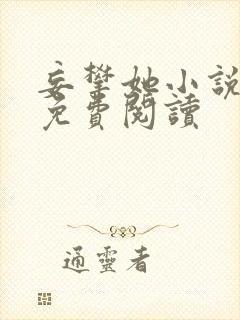 妄攀她小說
免費閱讀
通靈者